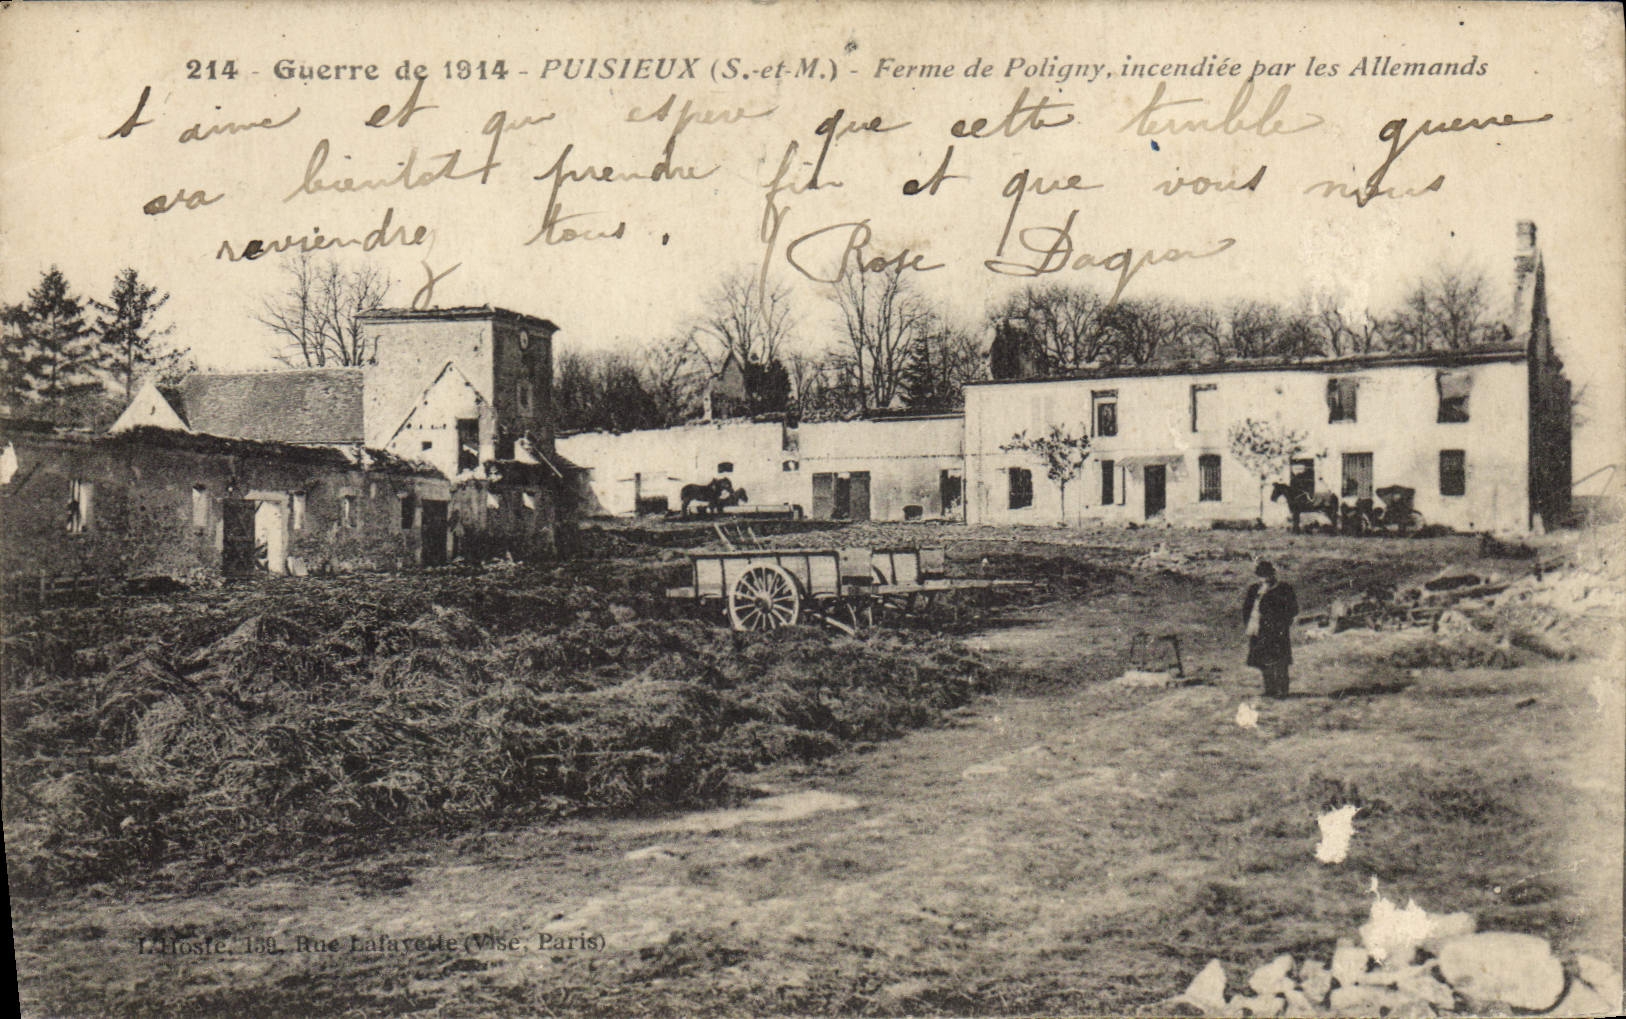 214 - Guerre de 1914 - PUISIEUX (S.-et-M.) - Ferme de Poligny, incendiée par les Allemands
t aime et qui espère que cette terrible guerre
va bientot prendre fin et que vous nous
reviendrez tous. Rose
L'Hoste, 139, Rue Lafayette (Vise, Paris)